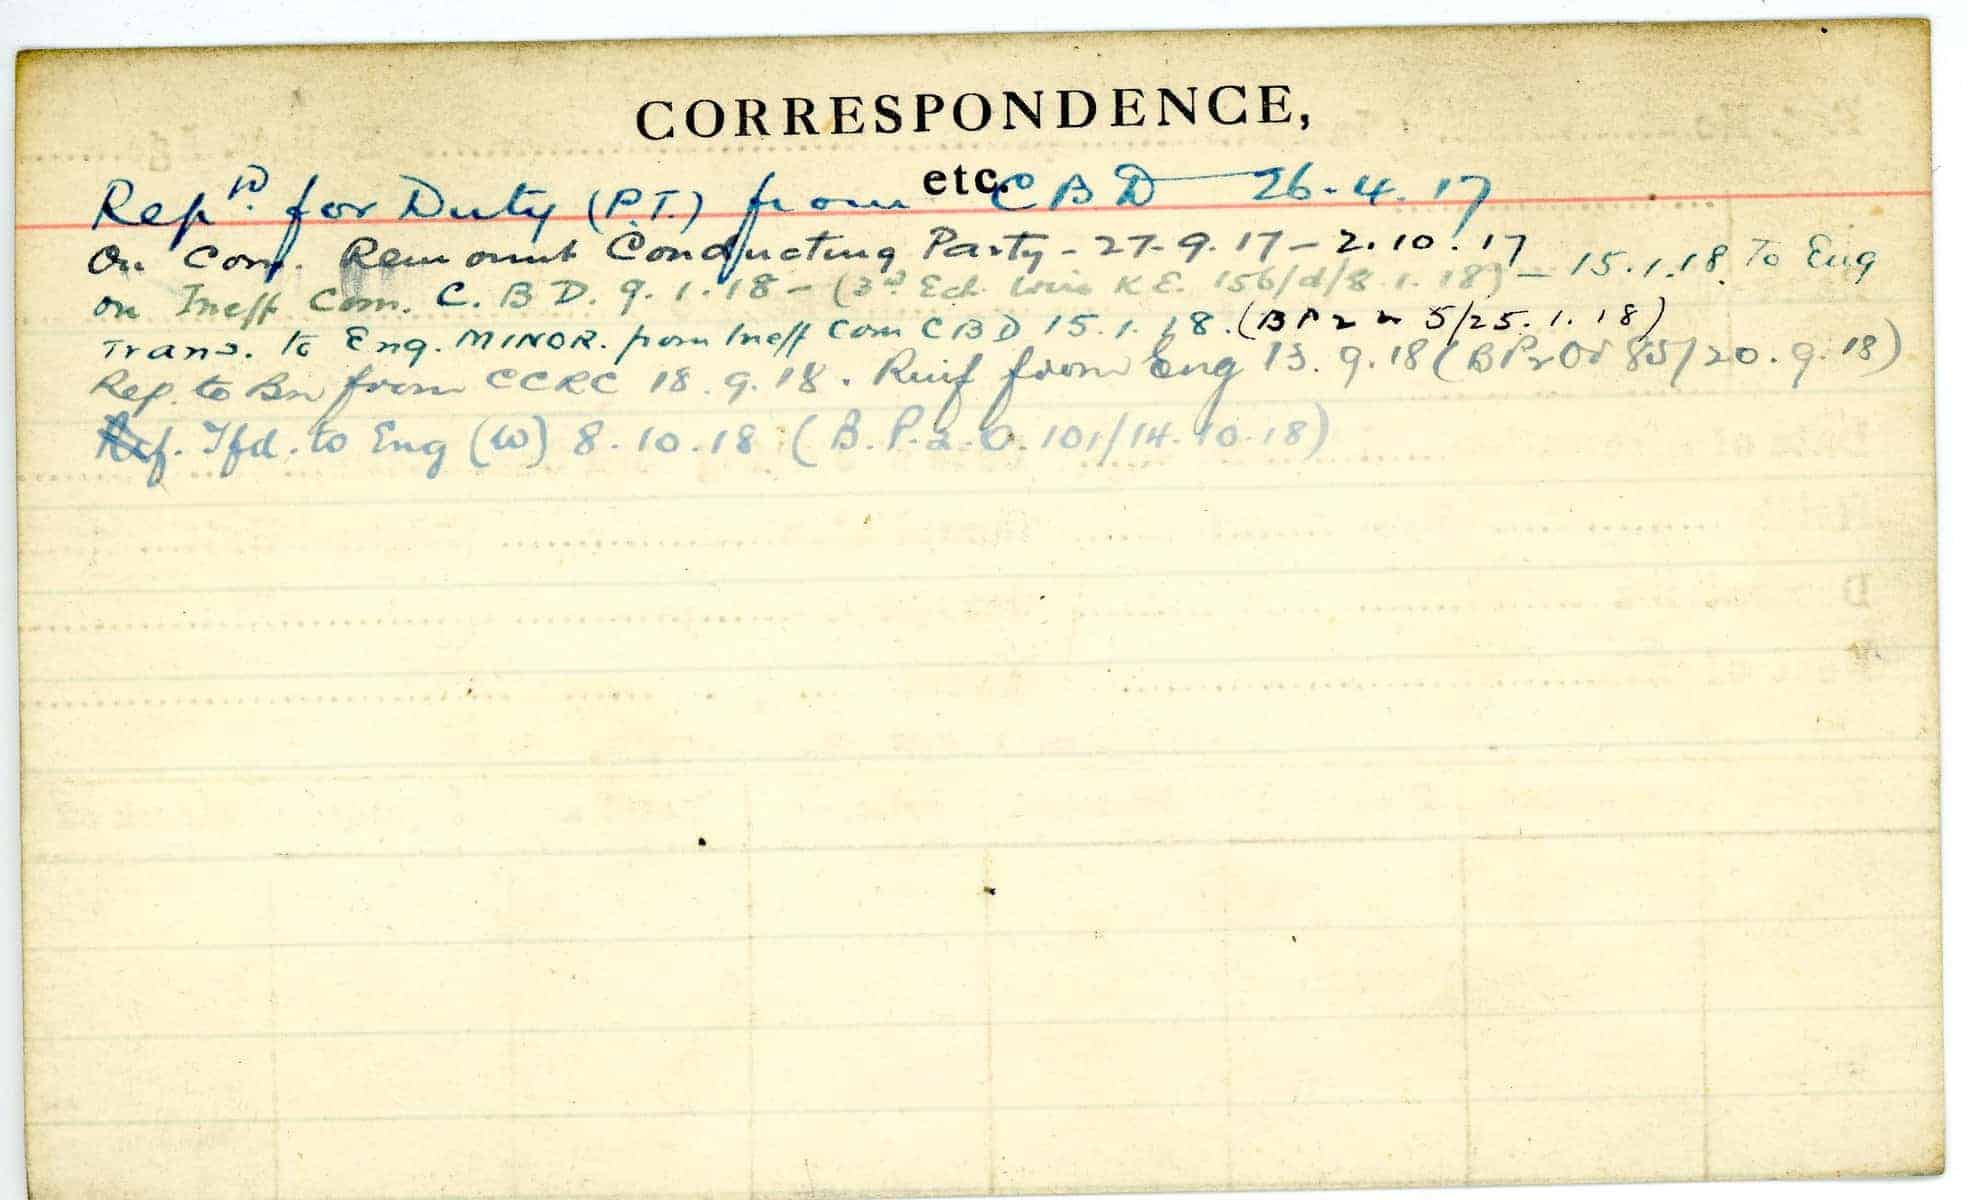 CORRESPONDENCE,
etc
Rep^D. for Duty (P.T.) from C B D — 26-4.17
On Com. Remount Conducting Party - 27-9.17 - 2.10.17
on Ineff Com. C.B D. 9.1.18 - (3rd Ech. K E. 156/d/8.1.18) - 15.1.18. To Eng
Trans. to Eng. MINOR. from Ineff Com C B D 15.1.18. (B P 2 5/25.1.18)
Rep. to Bn from CCRC 18.9.18. Reinf from Eng 13.9.18 (B P 2 85/20.9.18)
Tfd. to Eng (W) 8.10.18 (B.P.2.O.101/14.10.18)